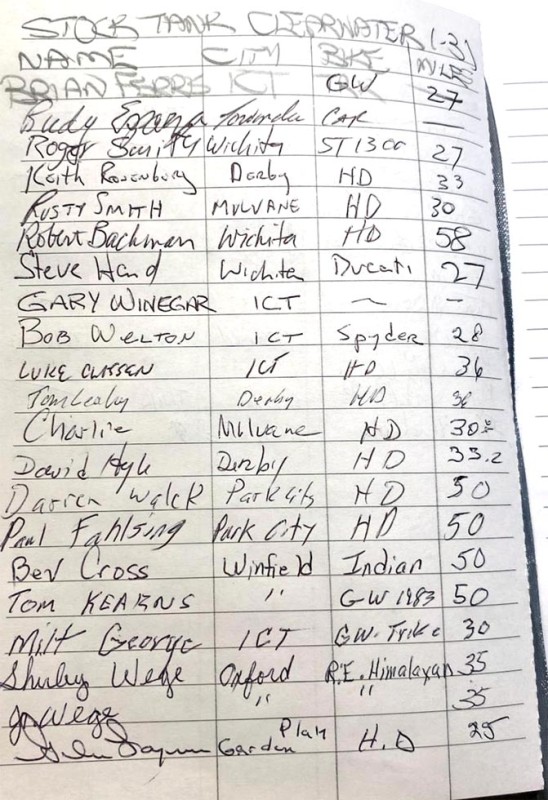 STOCK TANK CLEARWATER (-3)
NAME CITY BIKE MILES
BRIAN FERRIS ICT GW 27
Rudy CAR —
Roger Wichita ST1300 27
Keith Rosenburg Derby HD 33
RUSTY SMITH MULVANE HD 30
Robert Bachman Wichita HD 58
Steve Hand Wichita Ducati 27
GARY WINEGAR ICT ~ –
BOB WELTON ICT Spyder 28
LUKE CLASSEN ICT HD 36
Tom Leahy Derby HD
Charlie Mulvane HD
David Hyle Derby HD 33.2
Darren Park City HD 50
Paul Fahlsing Park City HD 50
Bev Cross Winfield Indian 50
TOM KEARNS " GW 1983 50
Milt George ICT GW. Trike 30
Shirley Wege Oxford R.E. Himalayan 35
Jo Wege " " 35
Garden Plain H.D 25